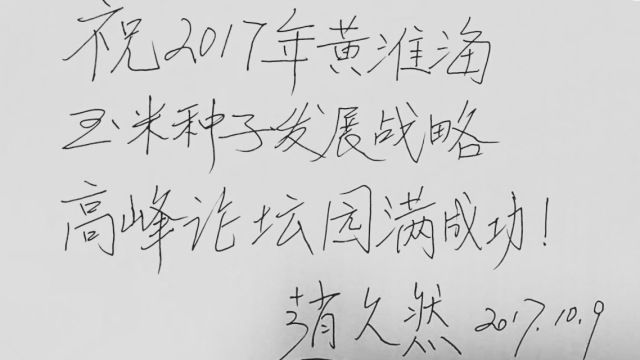 祝2017年黄淮海
玉米种子发展战略
高峰论坛圆满成功!
赵久然 2017.10.9